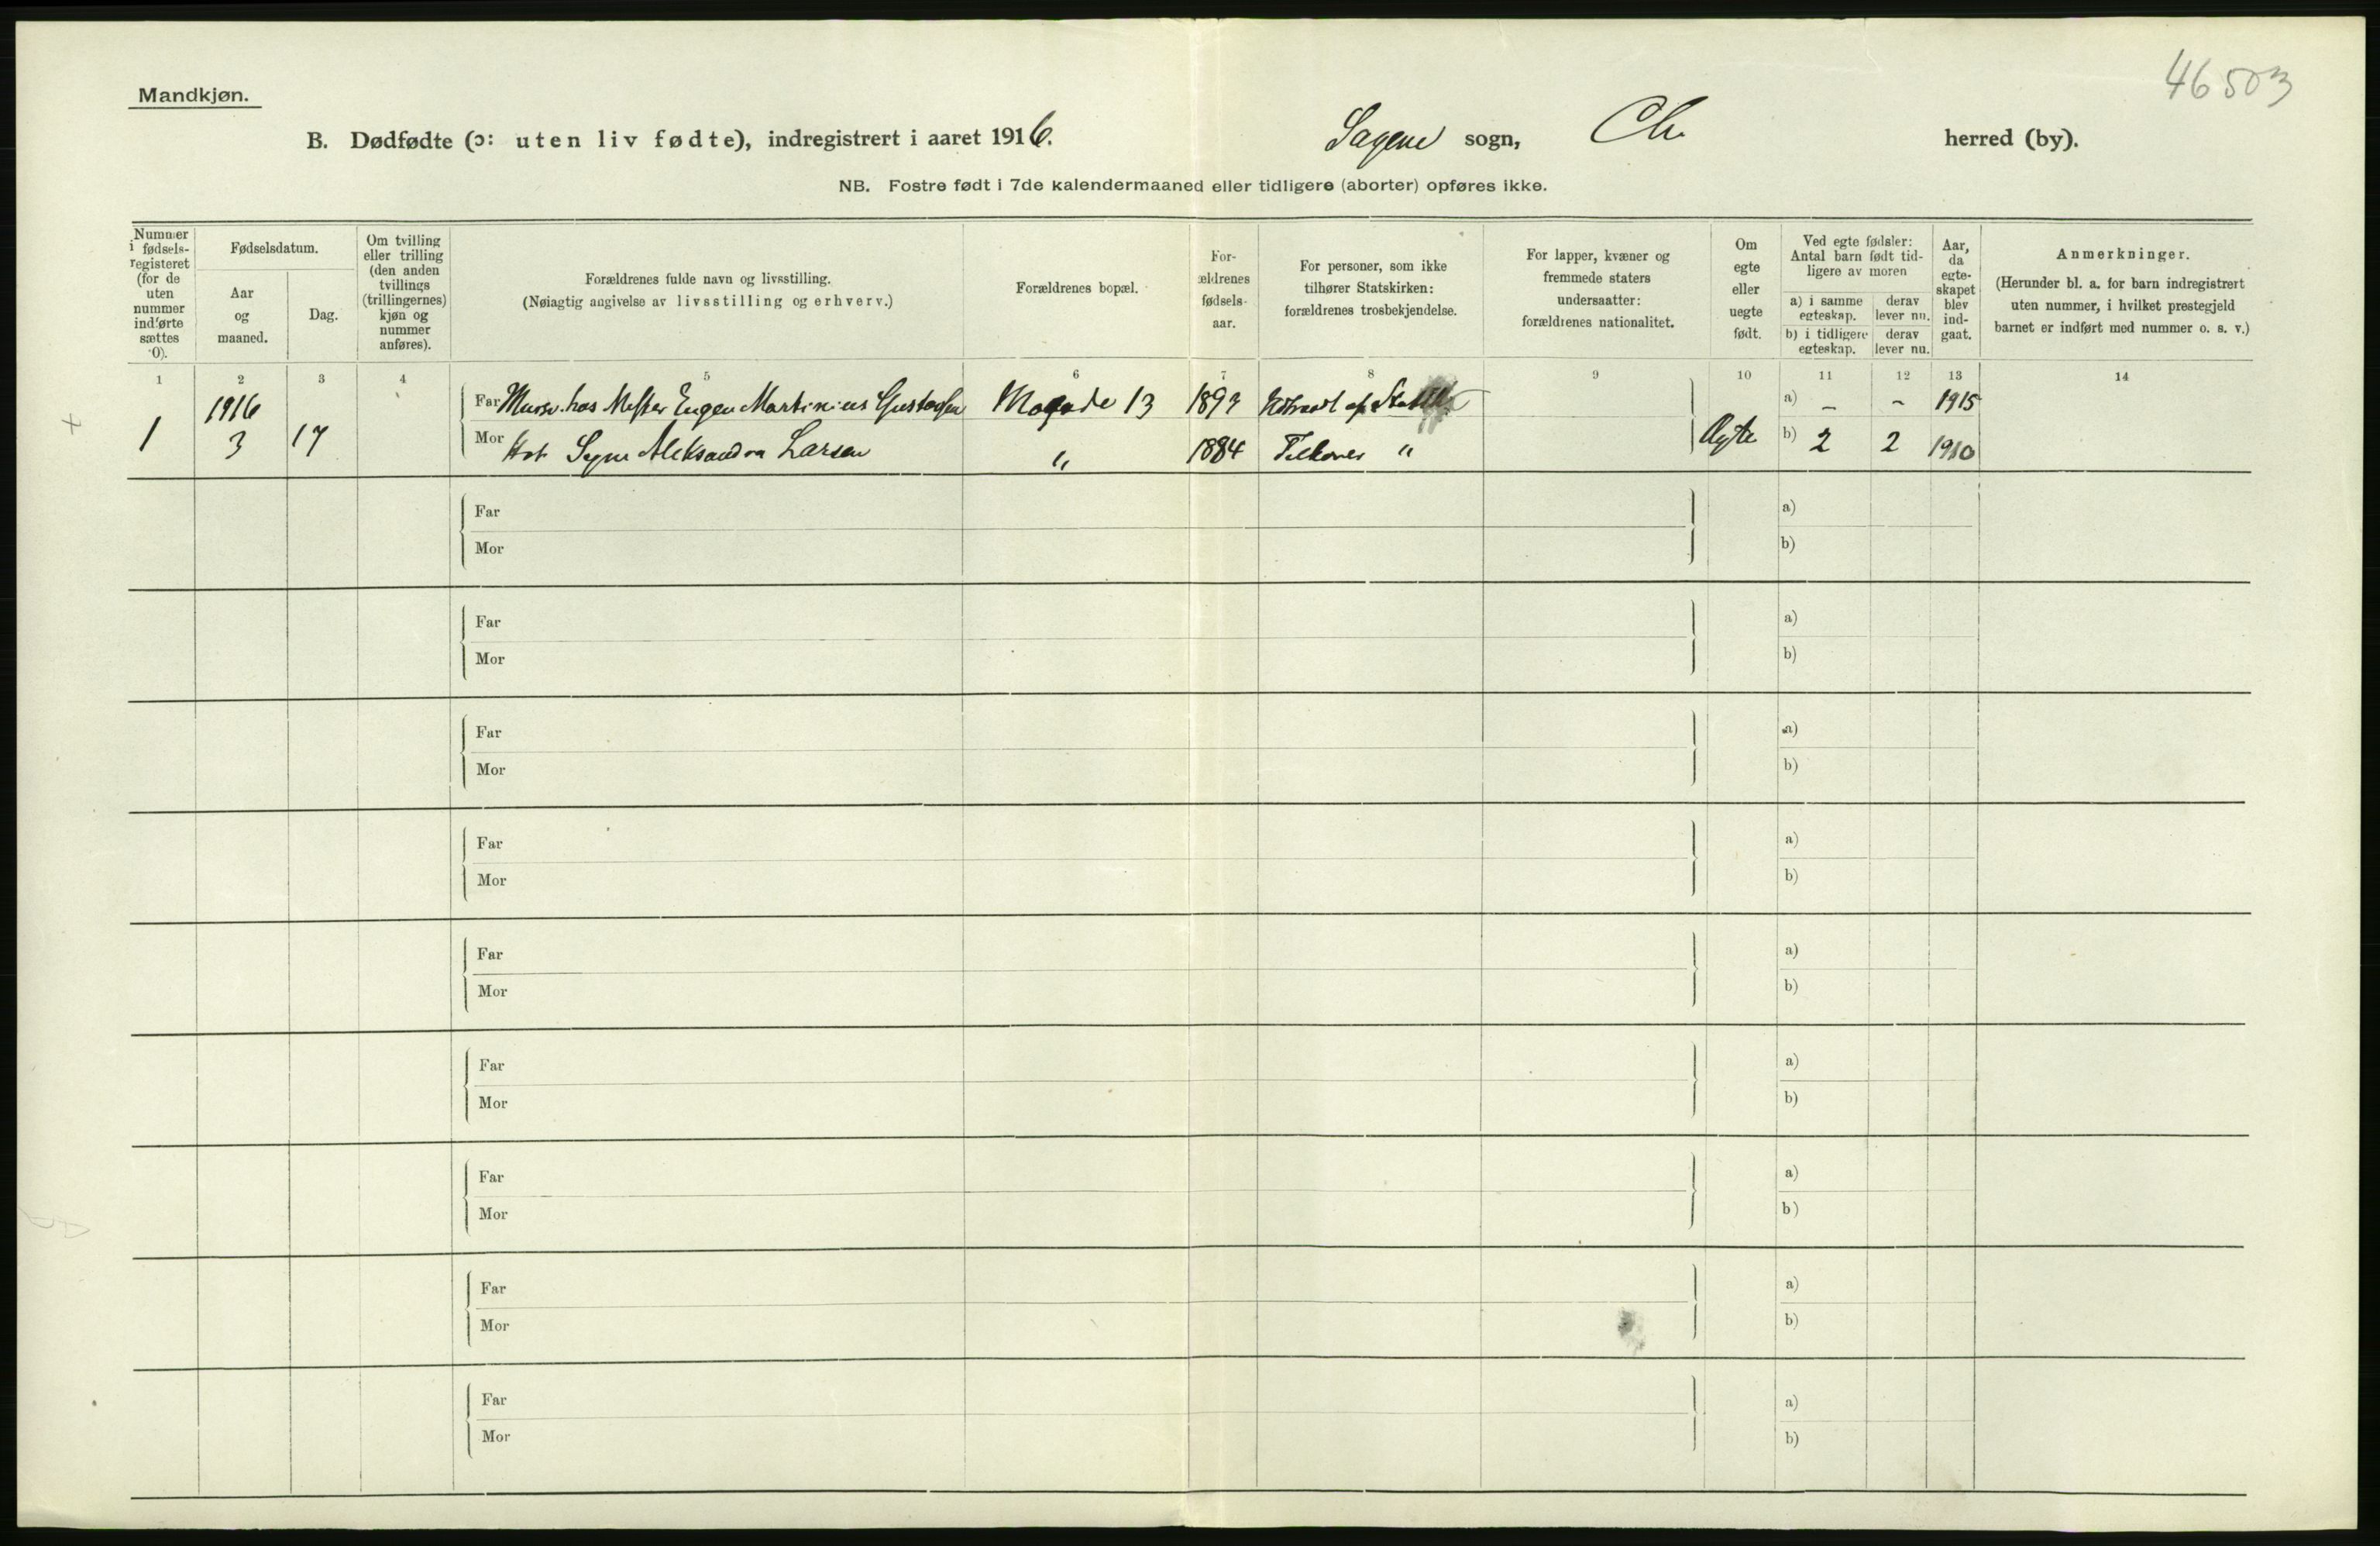 46503
Mandkjøn.
B. Dødfødte (ɔ: uten liv fødte), indregistrert i aaret 1916. Sagene sogn, Chr herred (by).
NB. Fostre født i 7de kalendermaaned eller tidligere (aborter) opføres ikke.
Nummer i fødsels-registeret (for de uten nummer indførte sættes 0).
Fødselsdatum.
Aar og maaned.
Dag.
Om tvilling eller trilling (den anden tvillings (trillingernes) kjøn og nummer anføres).
Forældrenes fulde navn og livsstilling.
(Nøiagtig angivelse av livsstilling og erhverv.)
Forældrenes bopæl.
For-ældrenes fødsels-aar.
For personer, som ikke tilhører Statskirken: forældrenes trosbekjendelse.
For lapper, kvæner og fremmede staters undersaatter: forældrenes nationalitet.
Om egte eller uegte født.
Ved egte fødsler: Antal barn født tid-ligere av moren
a) i samme egteskap.
derav lever nu.
b) i tidligere egteskap.
derav lever nu.
Aar, da egte-skapet blev ind-gaat.
Anmerkninger.
(Herunder bl. a. for barn indregistrert uten nummer, i hvilket prestegjeld barnet er indført med nummer o. s. v.)
1 2 3 4 5 6 7 8 9 10 11 12 13 14
1916 Far hos Mester Eugen Martinius Gustavsen 13 1893 a) – – 1915
1 3 17 Mor Signe Aleksandra Larsen " 1884 " Ægte b) 2 2 1910
Far a)
Mor b)
Far a)
Mor b)
Far a)
Mor b)
Far a)
Mor b)
Far a)
Mor b)
Far a)
Mor b)
Far a)
Mor b)
Far a)
Mor b)
Far a)
Mor b)